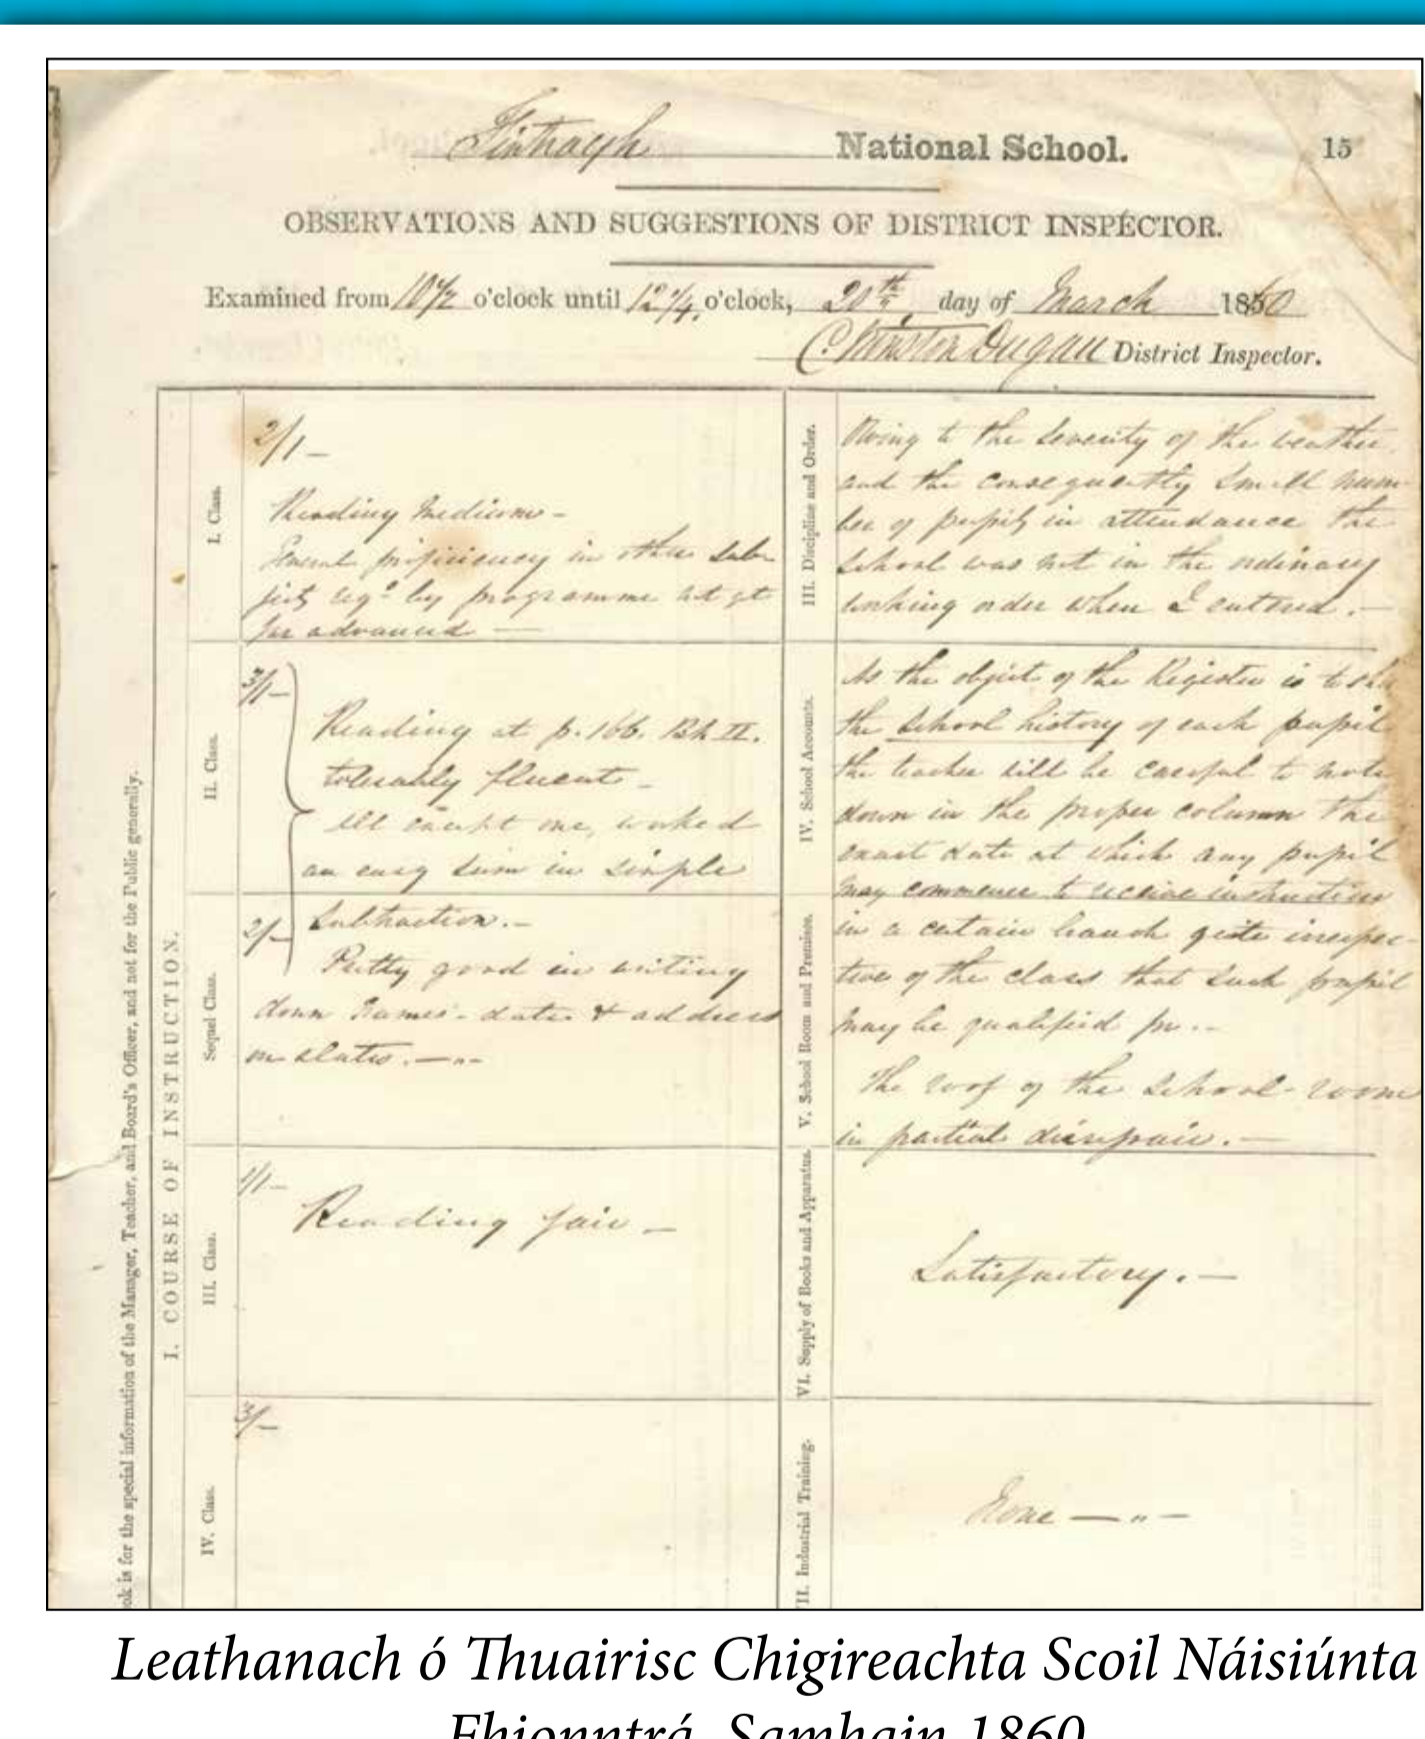 Fintragh National School. 15
OBSERVATIONS AND SUGGESTIONS OF DISTRICT INSPECTOR.
Examined from 10 1/2 o'clock until 12 1/4 o'clock, 20th day of March 1860
C. Winston Dugan District Inspector.
ok is for the special information of the Manager, Teacher, and Board's Officer, and not for the Public generally.
I. COURSE OF INSTRUCTION.
I. Class.
2/1 —
Reading medium —
General proficiency in other sub
jects reqd by programme not yt
far advanced —
II. Class.
3/1 —
Reading at p. 166. Bk II.
tolerably fluent —
All except one, worked
an easy sum in simple
Sequel Class.
2/—
Subtraction. —
Pretty good in writing
down names - date & address
on slates. — " —
III. Class.
1/1 —
Reading fair —
IV. Class.
3/—
III. Discipline and Order.
Owing to the severity of the weather
and the consequently small num-
ber of pupils in attendance the
school was not in the ordinary
working order when I entered. —
IV. School Accounts.
As the object of the Register is to
the school history of each pupil
the teacher will be careful to note
down in the proper column the
exact date at which any pupil
may commence to receive instruction
V. School Room and Premises.
in a certain branch quite irrespec-
tive of the class that such pupil
may be qualified for. —
The roof of the school-room
in partial disrepair. —
VI. Supply of Books and Apparatus.
Satisfactory. —
VII. Industrial Training.
None — " —
Leathanach ó Thuairisc Chigireachta Scoil Náisiúnta
Fhionntrá, Samhain 1860